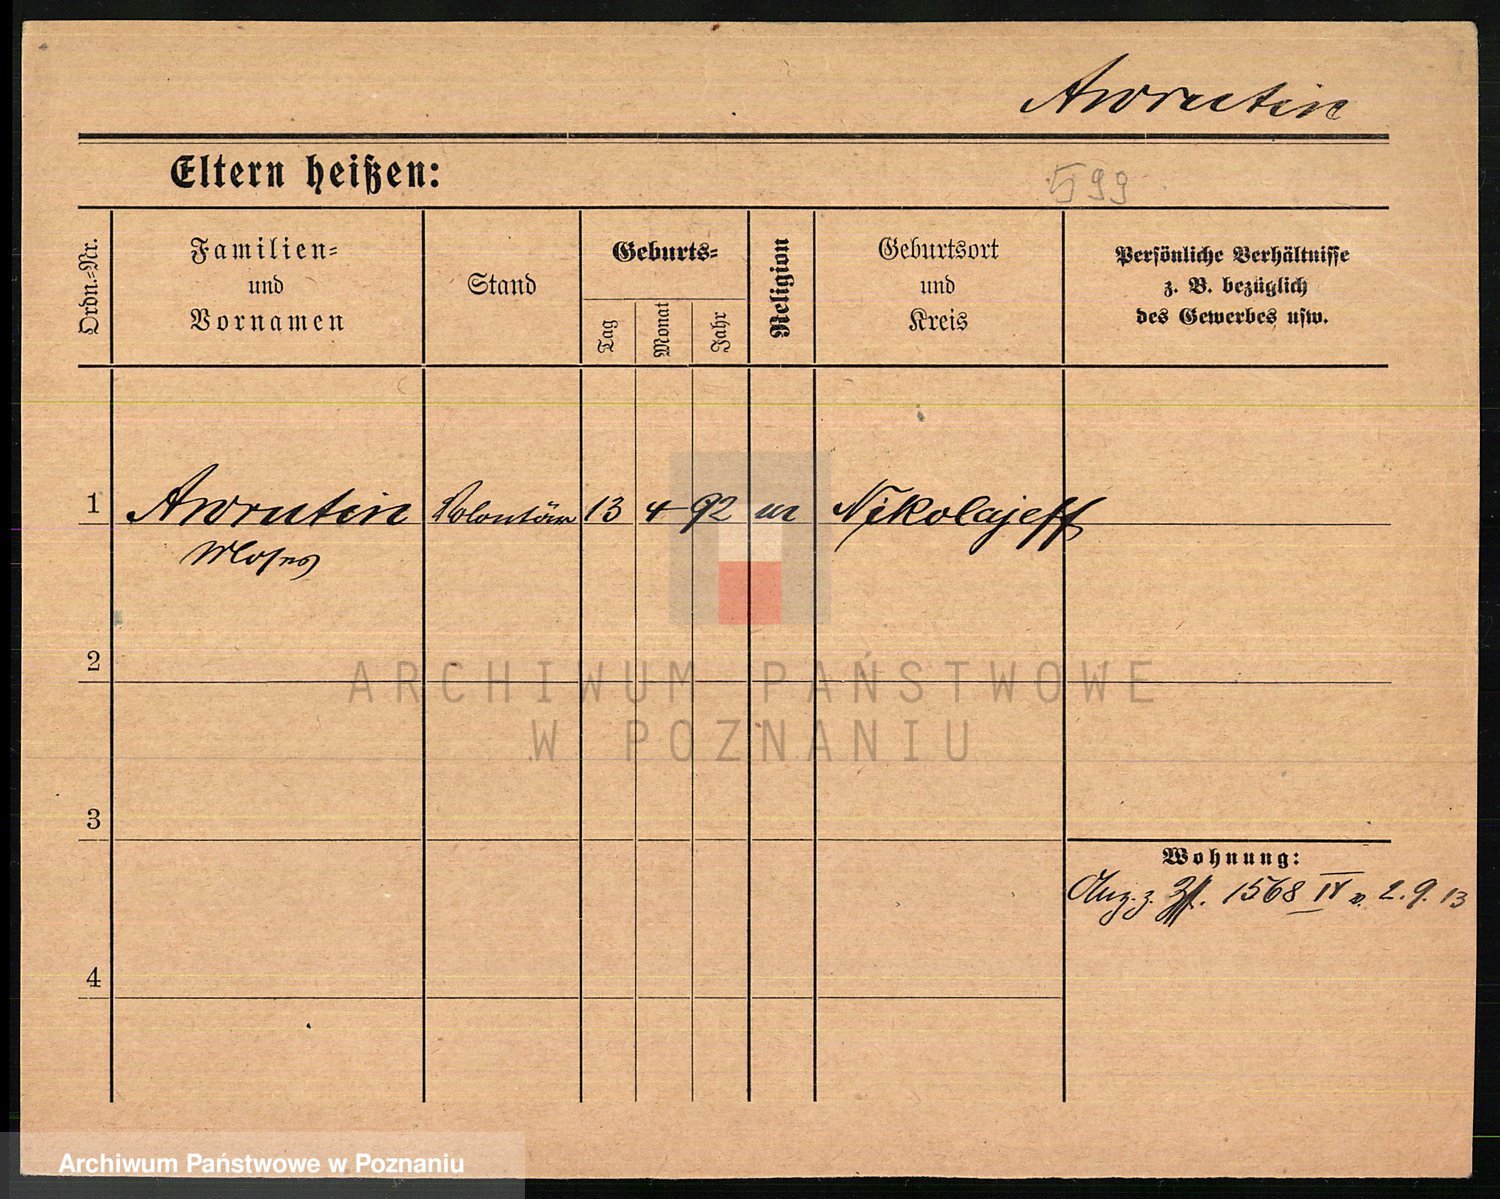 Awrutin
Eltern heißen:
599
Ordn.-Nr.
Familien-
und
Vornamen
Stand
Geburts-
Tag
Monat
Jahr
Religion
Geburtsort
und
Kreis
Persönliche Verhältnisse
z. B. bezüglich
des Gewerbes usw.
1 Awrutin Volontär 13 4 92 Nikolajeff
Moses
2
ARCHIWUM PAŃSTWOWE
W POZNANIU
3
Wohnung:
Anz. z. 1568 IV v. 2.9.13
4
Archiwum Państwowe w Poznaniu